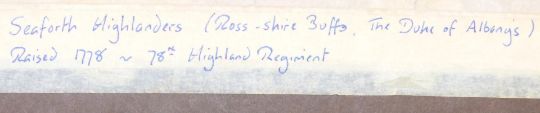 Seaforth Highlanders (Ross-shire Buffs, The Duke of Albany's)
Raised 1778 ~ 78th Highland Regiment